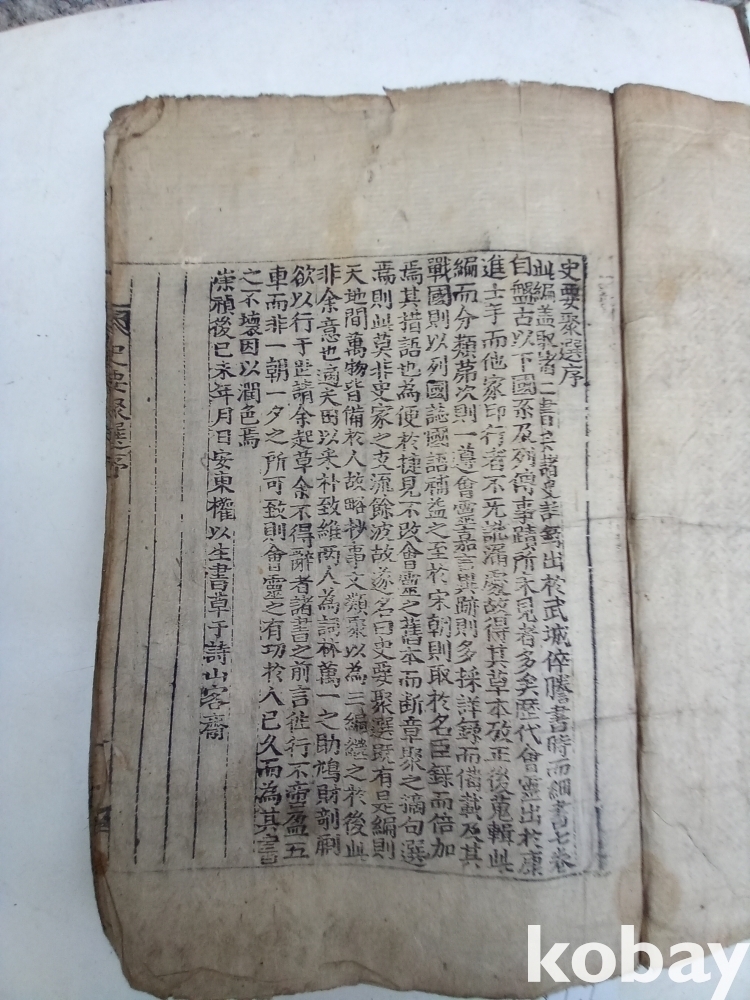 史要聚選序
此編盖取諸二書쯔諸史註歸出於武城倅謄書時而細書七卷
自盤古以下國系及列傳事蹟所未見者多矣歷代會靈出於康
進士手而他家印行者不无訛漏處故得其草本攷正後蒐輯此
編而分類第次則一遵會靈嘉言異跡則多採詳錄而備載及其
戰國則以列國誌國語補益之至於宋朝則取於名臣錄而倍加
焉其措語也為便於捷見不改會靈之舊本而斷章聚之摘句選
焉則此莫非史家之支流餘波故遂名曰史要聚選旣有是編則
天地間萬物皆備於人故略抄事文類聚以為三編繼之於後此
非余意也適夫田以采朴致維兩人為詞林萬一之助鳩財剞劂
欲以行于世請余起草余不得辭者諸書之前言徃行不啻盈五
車而非一朝一夕之所可致則會靈之有功於人已久而為其書
之不壞因以潤色焉
崇禎後己未年月日安東權以生書草于詩山客齋
史要聚選序
kobay